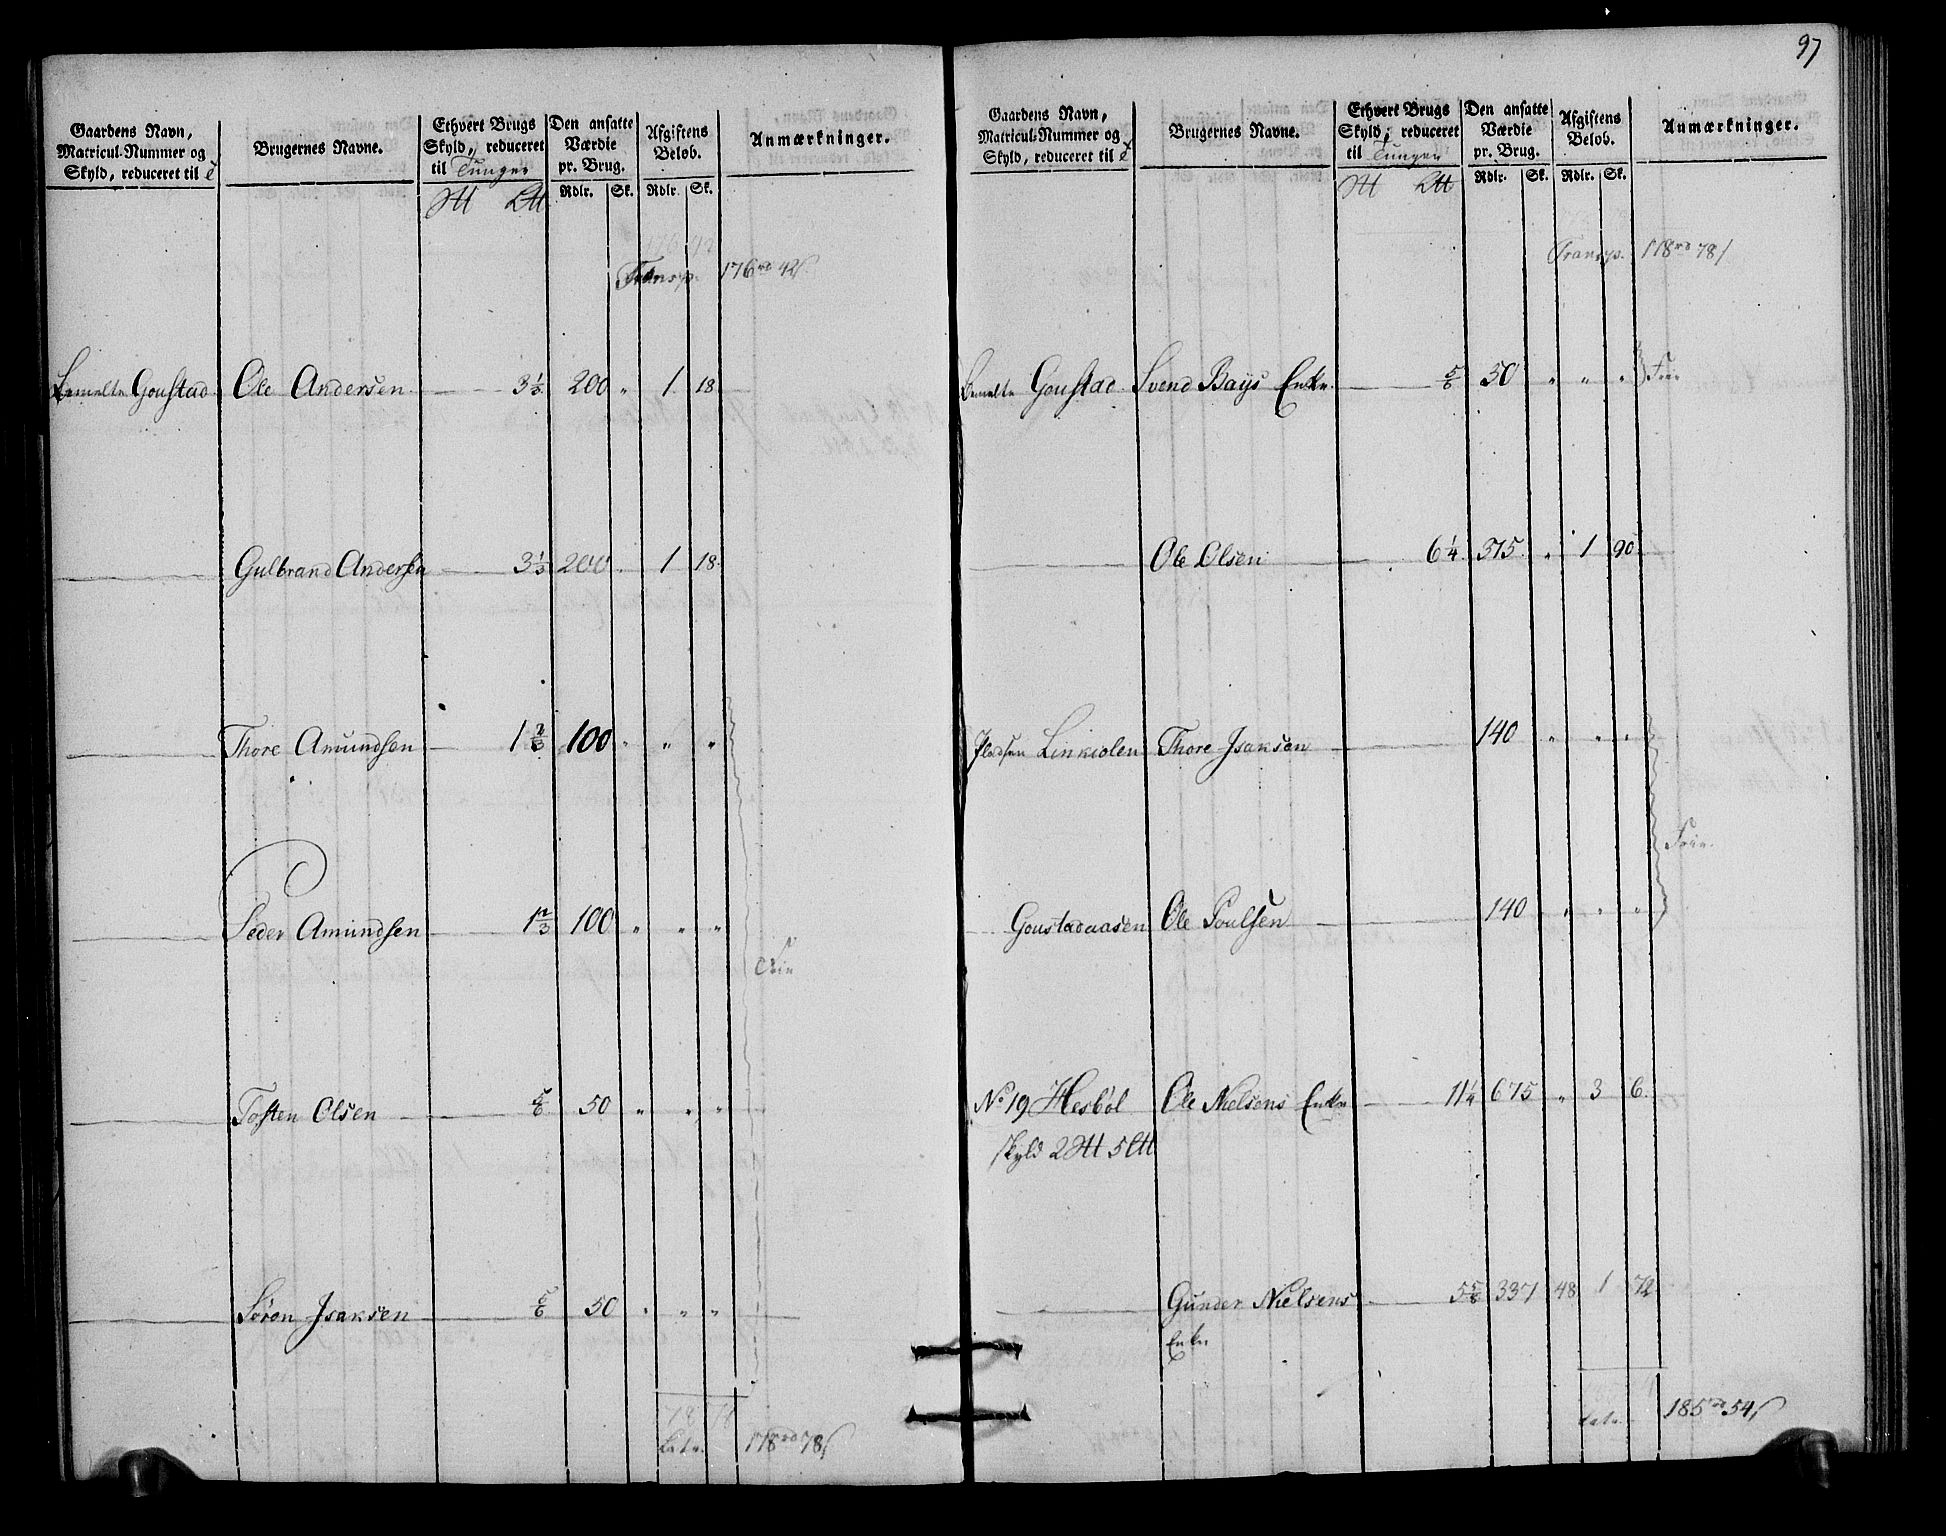 97
Gaardens Navn, Matricul-Nummer og Skyld, reduceret til
Brugernes Navne.
Ethvert Brugs Skyld, reduceret til Tunger
Den ansatte Værdie pr. Brug.
Afgiftens Beløb.
Anmærkninger.
Rdlr. Sk. Rdlr. Sk.
Transp. 176 rd 42 s
Bemelte Goustad Ole Andersen 3 1/3 200 " 1 18
Gulbrand Andersen 3 1/3 200 . 1 18
Thore Amundsen 1 2/3 100 " " "
Peder Amundsen 1 2/3 100 " " "
Frie
Tosten Olsen 5/6 50 " " "
Søren Isaksen 5/6 50 " " "
Late. 178 rd 78 s
Gaardens Navn, Matricul-Nummer og Skyld, reduceret til
Brugernes Navne.
Ethvert Brugs Skyld, reduceret til Tunger
Den ansatte Værdie pr. Brug.
Afgiftens Beløb.
Anmærkninger.
Rdlr. Sk. Rdlr. Sk.
Transp. 178 rd 78 s
Bemelte Goustad Svend Bays Enke 5/6 50 " " " Frie
Ole Olsen 6 1/4 375 " 1 90
Pladsen Linkiolen Thore Isaksen 140 " " "
Frie
Goustadaasen Ole Poulsen 140 " " "
No 19 Hesbøl Ole Nielsens Enke 11 1/4 675 " 3 6
skyld 2 5
Gunder Nielsens 5 5/8 337 48 1 72
Enke
Late. 185 rd 54 s